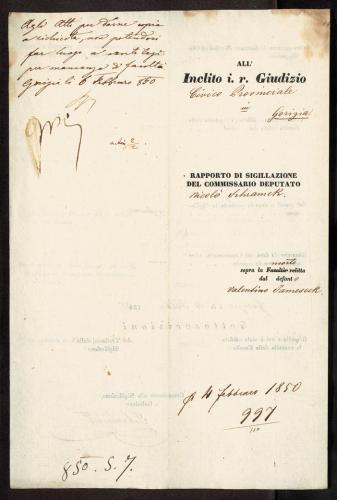 Agli Atti per darne copia
a richiesta, non potendosi
far luogo a
per mancanza di facoltà
Gorizia li 6 Febbraro 850
ALL'
Inclito i. r. Giudizio
Civico Provinciale
in
Gorizia
RAPPORTO DI SIGILLAZIONE
DEL COMMISSARIO DEPUTATO
Nicolò Schramek.
morte
sopra la Facoltà relitta
dal defonto
Valentino
p 4 febbraro 1850
997
850. S. 7.